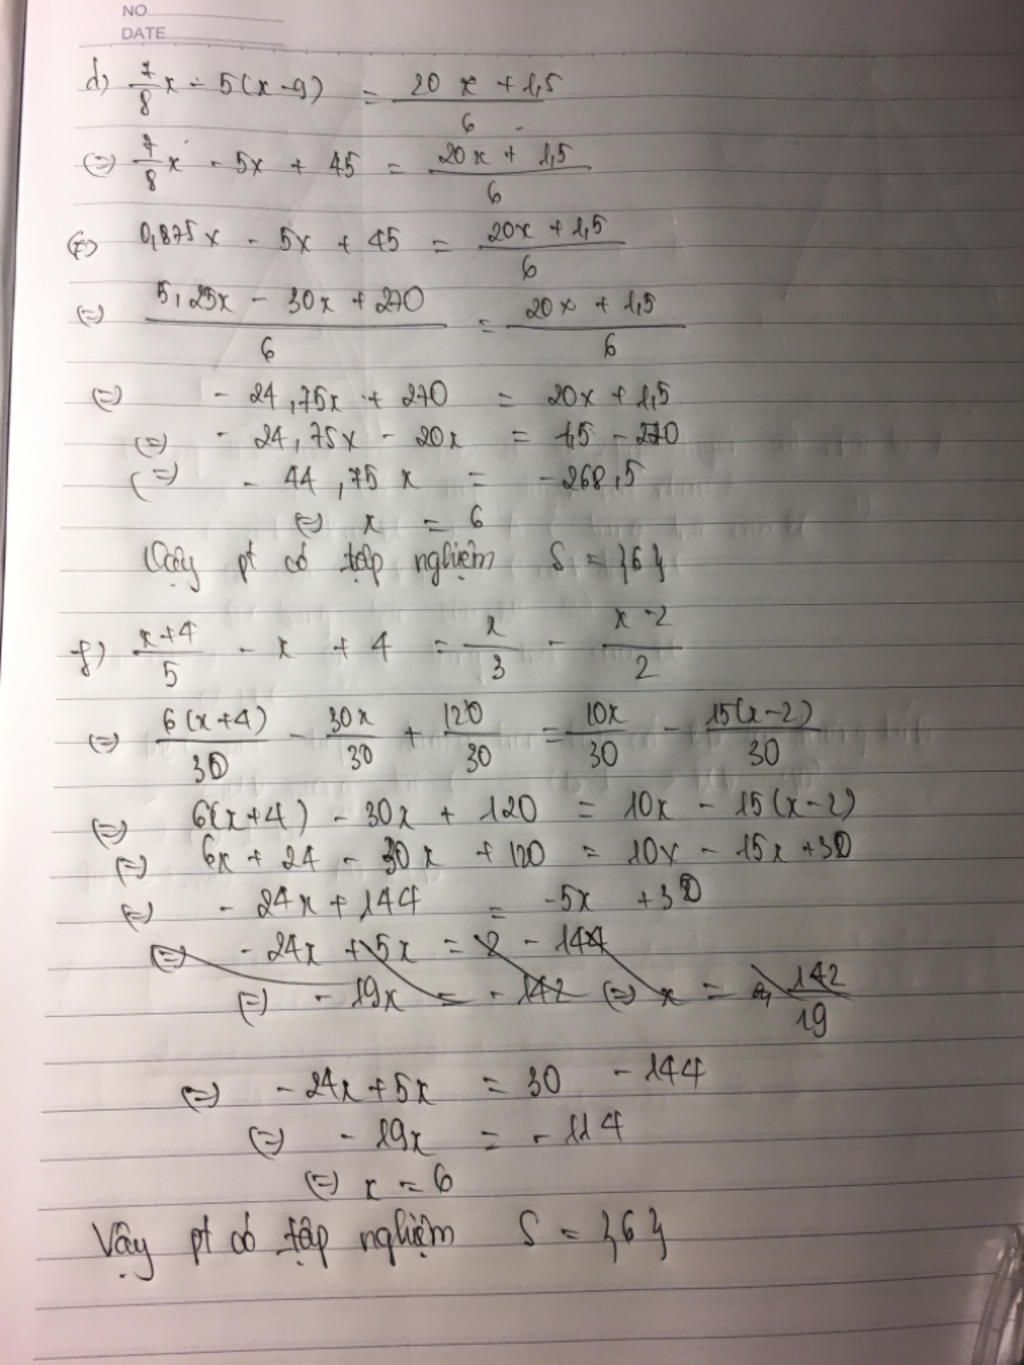 NO.
DATE
d) 7/8 x - 5(x-9) = (20x + 1,5)/6
(=) 7/8 x - 5x + 45 = (20x + 1,5)/6
(=) 0,875x - 5x + 45 = (20x + 1,5)/6
(=) (5,25x - 30x + 270)/6 = (20x + 1,5)/6
(=) - 24,75x + 270 = 20x + 1,5
(=) - 24,75x - 20x = 1,5 - 270
(=) - 44,75x = -268,5
(=) x = 6
Vậy pt có tập nghiệm S = {6}
f) (x+4)/5 - x + 4 = x/3 - (x-2)/2
(=) 6(x+4)/30 - 30x/30 + 120/30 = 10x/30 - 15(x-2)/30
(=) 6(x+4) - 30x + 120 = 10x - 15(x-2)
(=) 6x + 24 - 30x + 120 = 10x - 15x + 30
(=) - 24x + 144 = -5x + 30
(=) - 24x + 5x = 2 - 144
(=) - 19x = - 142 (=) x = 142/19
(=) - 24x + 5x = 30 - 144
(=) - 19x = - 114
(=) x = 6
Vậy pt có tập nghiệm S = {6}